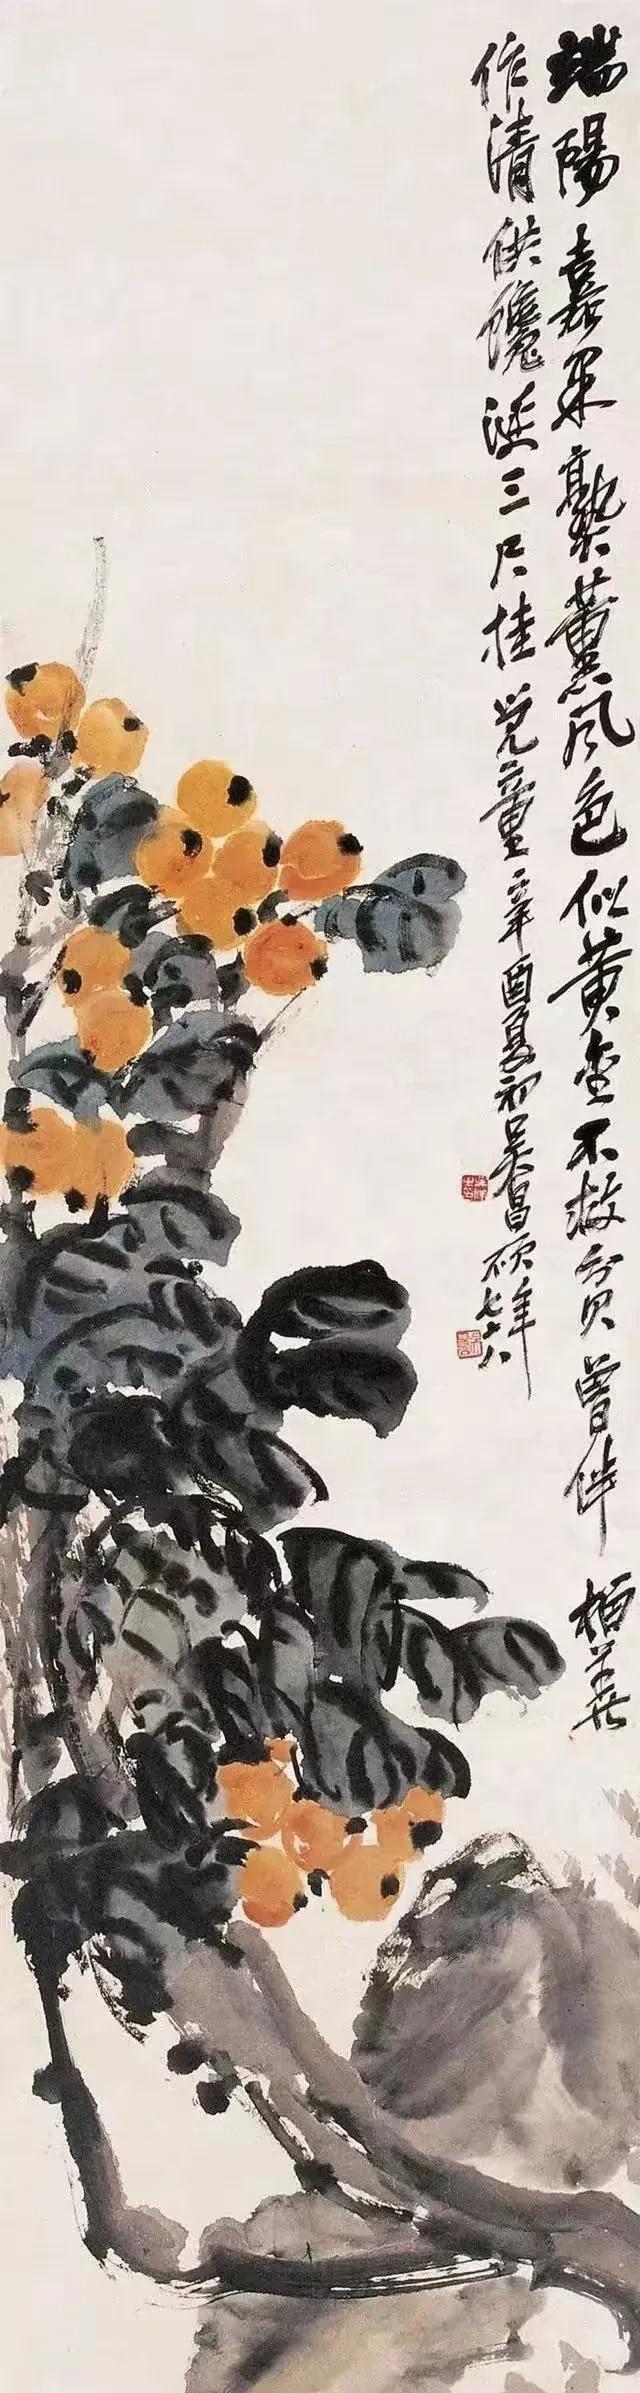 端陽嘉果熟薰風色似黃金不救貧曾伴榴華
作清供饞涎三尺挂兒童辛酉夏初吳昌碩年七十八